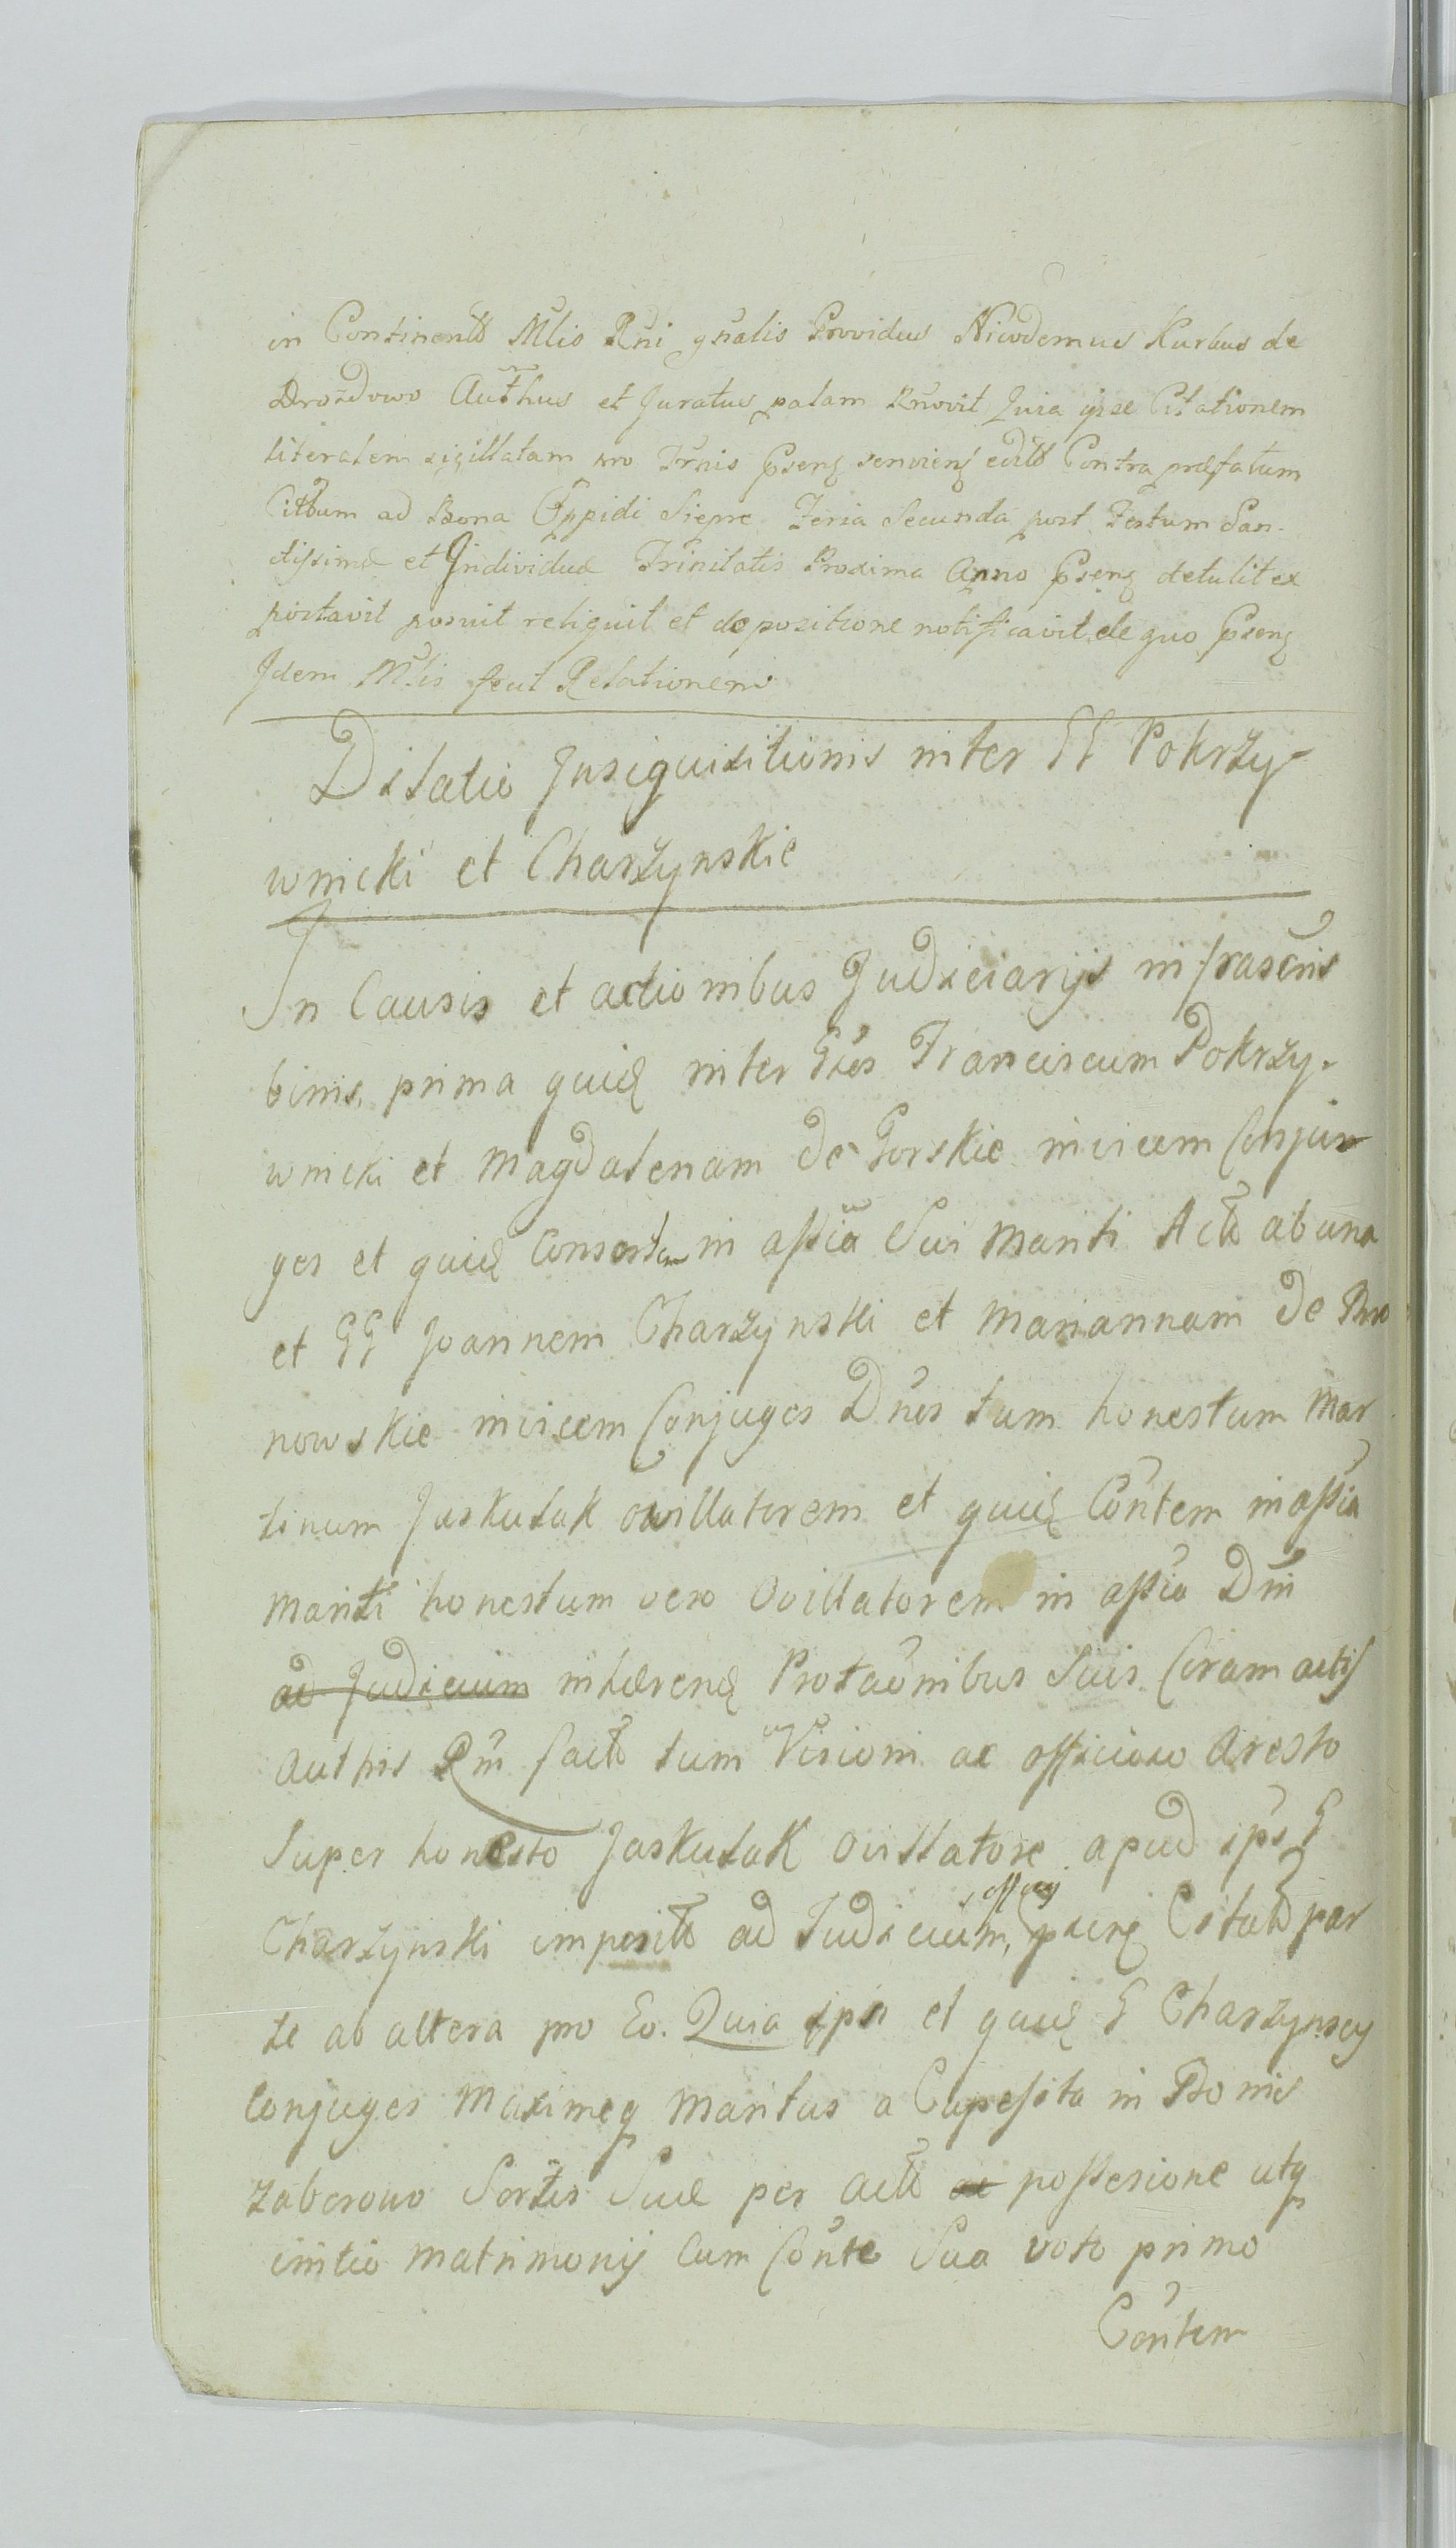 in Continentt Mlis Rni gnalis Providus Nicodemus Kurkus de
Drozdowo Authus et Juratus palam Rnovit Quia ipse Citationem
literalem sigillatam pro Trnis pseng servieng editt Contra præfatum
Cittum ad Bona Oppidi Sierpc Feria Secunda post Festum San-
ctissimæ et Individuæ Trinitatis Proxima Anno pseng detulit ex
portavit posuit reliquit et de positione notificavit de quo pseng
Idem Mlis fecit Relationem
Dilatio Jnsiquisitionis inter GG Pokrzy-
wnicki et Charzynskie
In Causis et actionibus Judiciarijs infrascris
binis, prima quid inter Gsos Franciscum Pokrzy-
wnicki et Magdalenam de Gorskie invicem Conju-
ges et quid Consortem in assia Sui Mariti Actt ab una
et GG Joannem Charzynski et Mariannam de
nowskie invicem Conjuges Dnos tum honestum Mar
tinum Jaskulak ovillatorem et quid Contem in assia
Mariti honestum vero Ovillatorem in assia Dni
ad Judicium inhærend Protaonibus Suis Coram actis
authis Rni factt tum Visioni ac officioso Aresto
Super honesto Jaskulak Ovillatore apud ips G
Charzynski impositt ad Judicium, officij Citatt par
te ab altera pro Eo. Quia ipsi et quid G Charzynscy
Conjuges Maximeq Maritus a Capessita in Bonis
Zaberowo Sortis Suæ per actt ac possesione utq
initio Matrimonij Cum Conte Sua voto primo
Contem